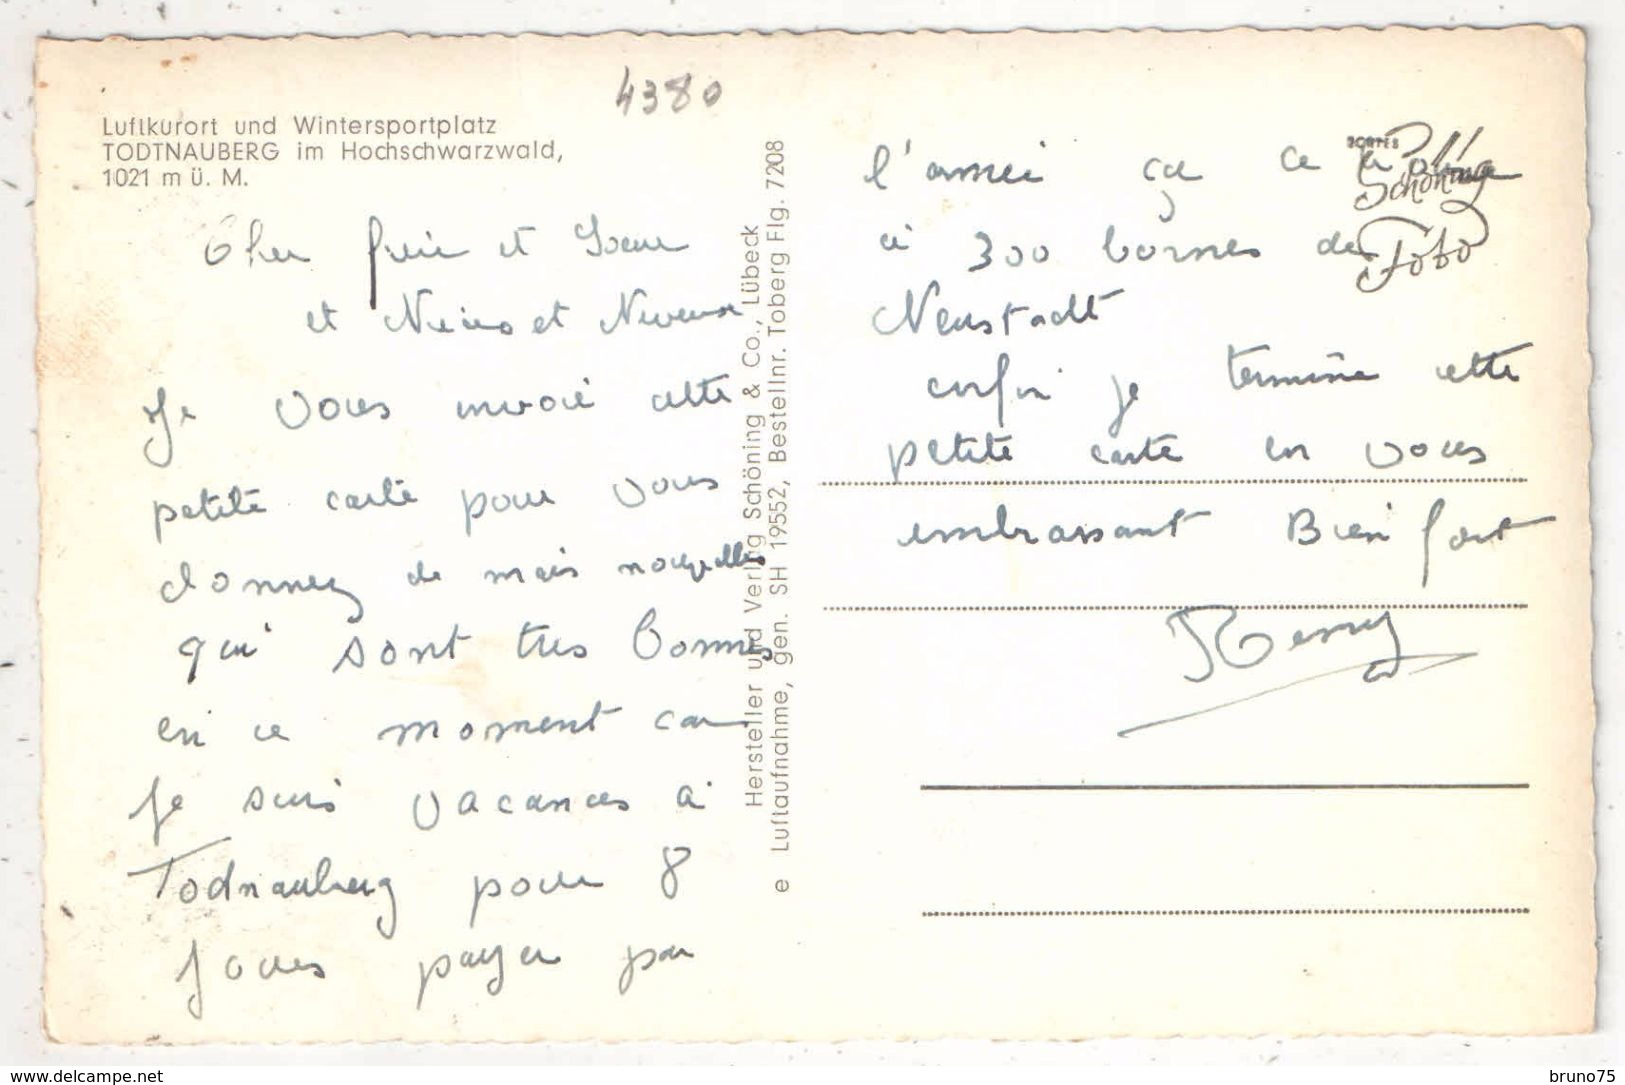 4380
Luftkurort und Wintersportplatz
TODTNAUBERG im Hochschwarzwald,
1021 m ü. M.
Cher frére et Soeur
et Nièces et Neveux
Je vous envoie cette
petite carte pour vous
donnez de mais nouvelles
qui sont tres bonnes
en ce moment car
je suis vacances à
Todnauberg pour 8
jours payer par
Hersteller und Verlag Schöning & Co., Lübeck
e Luftaufnahme, gen. SH 19552, Bestellnr. Toberg Flg. 7208
l'armei ça ce trouve
à 300 bornes de
Neustadt
enfin je termine cette
petite carte en vous
embrassant Bien fort
Remy
Schöning
Foto
delcampe.net
bruno75